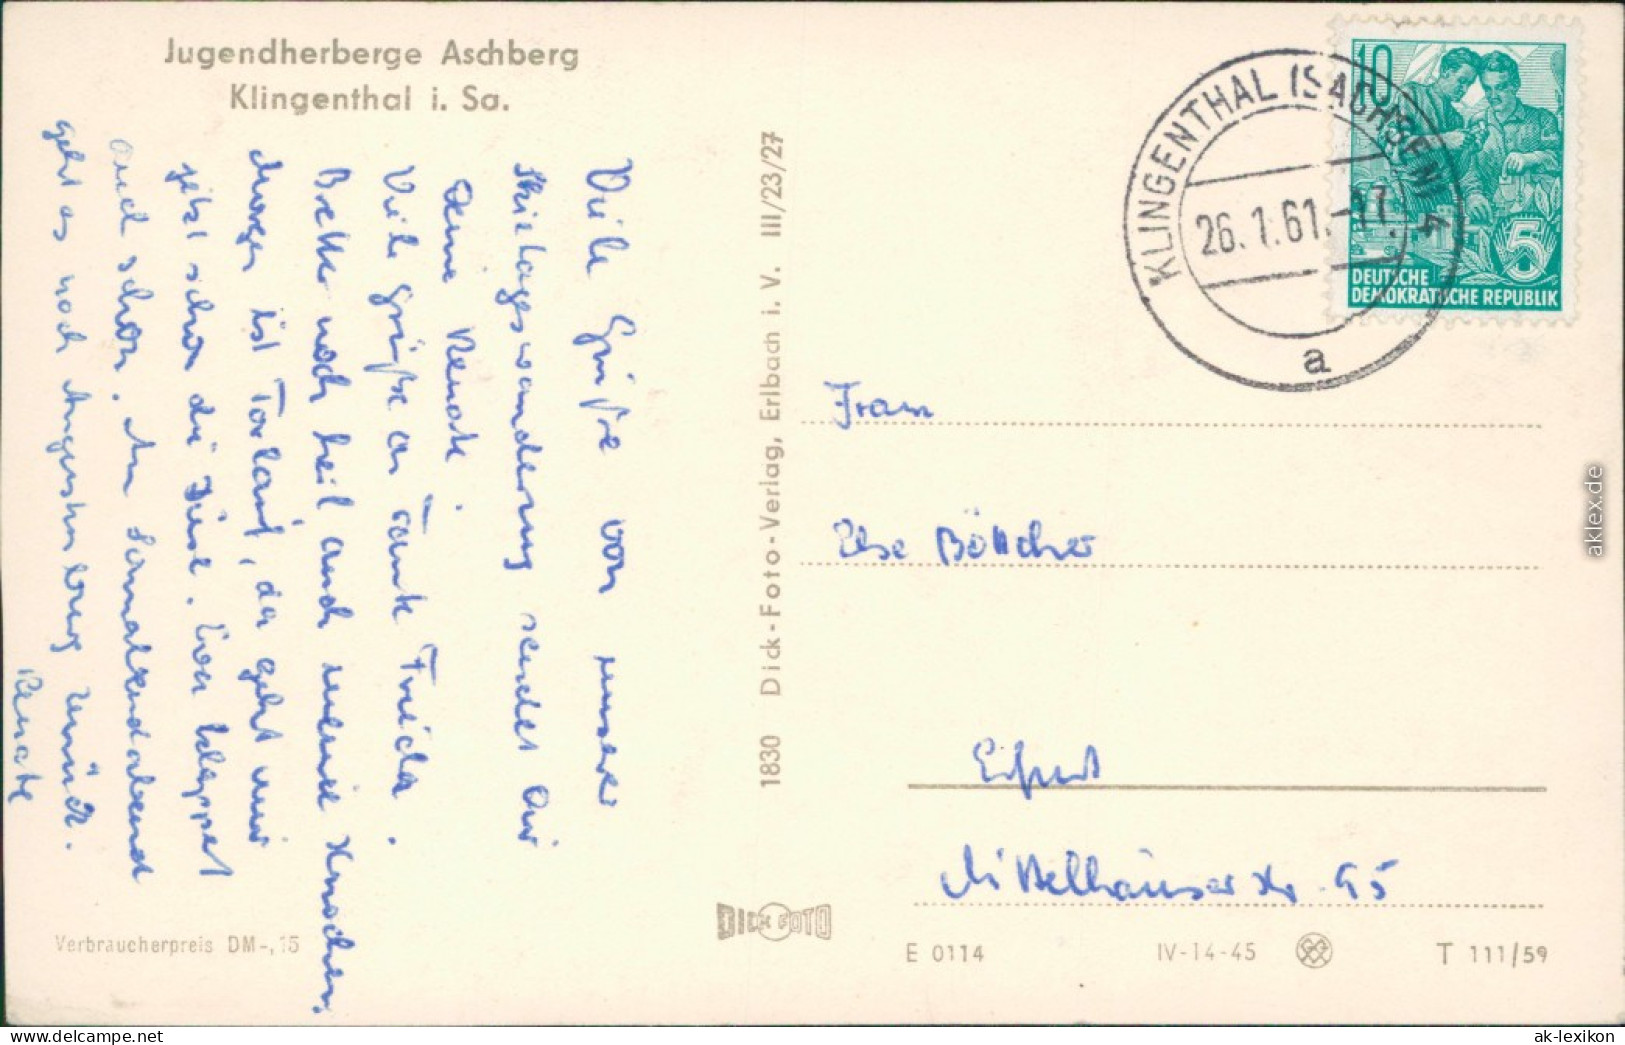 Jugendherberge Aschberg
Klingenthal i. Sa.
Viele Grüße von unserer
Skitageswanderung sendet Dir
Deine Renate.
Viele Grüße an Tante Frieda.
Bretter noch heil auch meine Knochen,
Morgen ist Torlauf, da geht mir
jetzt schon die Düse. Eva klappert
auch schon. Am Sonnabend
geht es nach Augustusburg zurück.
Renate
Verbraucherpreis DM -,15
1830 Dick-Foto-Verlag, Erlbach i. V. III/23/27
DICK FOTO
KLINGENTHAL (SACHSEN) 4
26.1.61.-17
a
10
5
DEUTSCHE
DEMOKRATISCHE REPUBLIK
Frau
Else Böttcher
Erfurt
Mittelhäuserstr. 95
E 0114 IV-14-45 T 111/59
aklex.de
www.delcampe.net
ak-lexikon